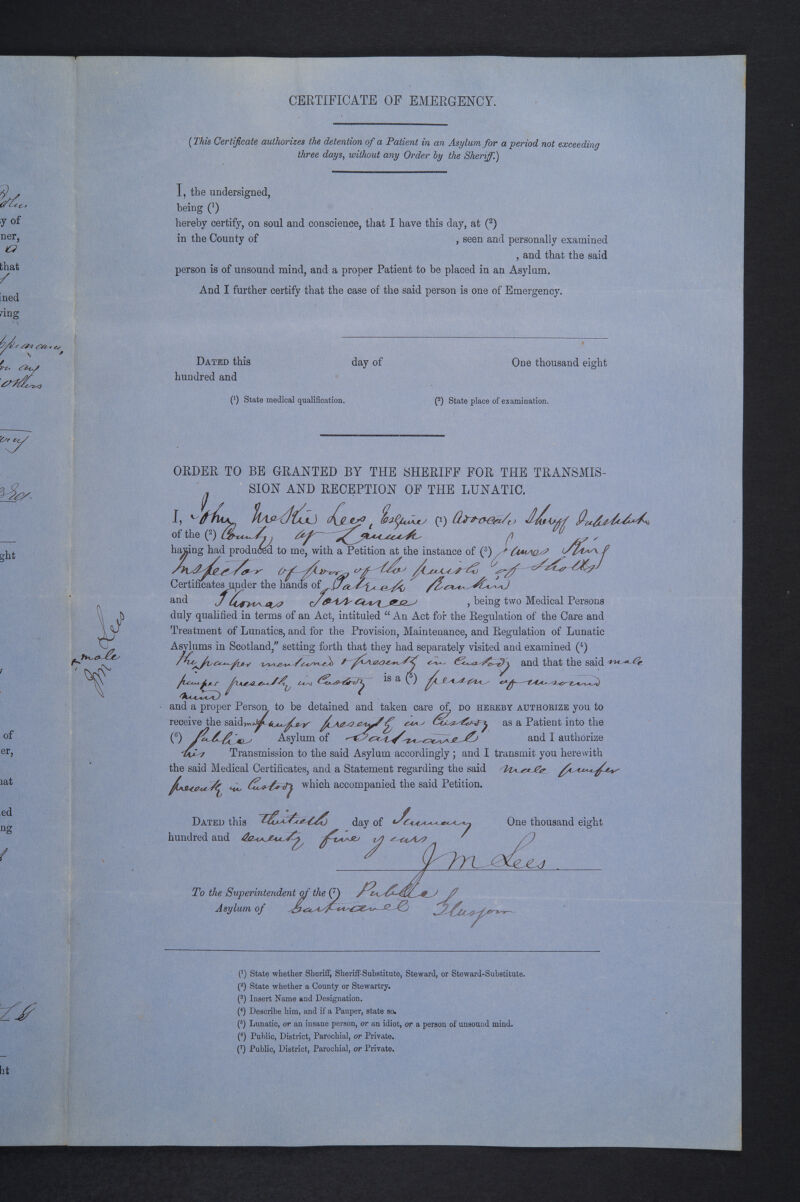 CERTIFICATE OF EMERGENCY.
(This Certificate authorizes the detention of a Patient in an Asylum for a period not exceeding
three days, without any Order by the Sheriff.)
I, the undersigned,
being (¹)
hereby certify, on soul and conscience, that I have this day, at (²)
in the County of , seen and personally examined
, and that the said
person is of unsound mind, and a proper Patient to be placed in an Asylum.
And I further certify that the case of the said person is one of Emergency.
DATED this day of One thousand eight
hundred and
(¹) State medical qualification. (²) State place of examination.
ORDER TO BE GRANTED BY THE SHERIFF FOR THE TRANSMIS-
SION AND RECEPTION OF THE LUNATIC.
I, John McKie Lees, Esquire (¹) Advocate Sheriff Substitute
of the (²) County of Lanark
having had produced to me, with a Petition at the instance of (³) James King
Inspector of poor of the parish of Shotts
Certificates under the hands of Patrick Rankin
and Thomas Torrance , being two Medical Persons
duly qualified in terms of an Act, intituled “ An Act for the Regulation of the Care and
Treatment of Lunatics, and for the Provision, Maintenance, and Regulation of Lunatic
Asylums in Scotland,” setting forth that they had separately visited and examined (⁴)
The pauper mentioned & presently in Custody and that the said male
pauper presently in Custody is a (⁵) person of unsound
mind
and a proper Person to be detained and taken care of, DO HEREBY AUTHORIZE you to
receive the said male pauper presently in Custody as a Patient into the
(⁶) Public Asylum of Gartnavel and I authorize
his Transmission to the said Asylum accordingly ; and I transmit you herewith
the said Medical Certificates, and a Statement regarding the said male pauper
presently in Custody which accompanied the said Petition.
DATED this Thirtieth day of January One thousand eight
hundred and seventy five years
J M Lees
To the Superintendent of the (⁷) Public
Asylum of Gartnavel Glasgow
(¹) State whether Sheriff, Sheriff-Substitute, Steward, or Steward-Substitute.
(²) State whether a County or Stewartry.
(³) Insert Name and Designation.
(⁴) Describe him, and if a Pauper, state so.
(⁵) Lunatic, or an insane person, or an idiot, or a person of unsound mind.
(⁶) Public, District, Parochial, or Private.
(⁷) Public, District, Parochial, or Private.
male
J M Lees
y of
ner,
a
that
ined
ving
others
ght
of
er,
hat
ed
ng
ht